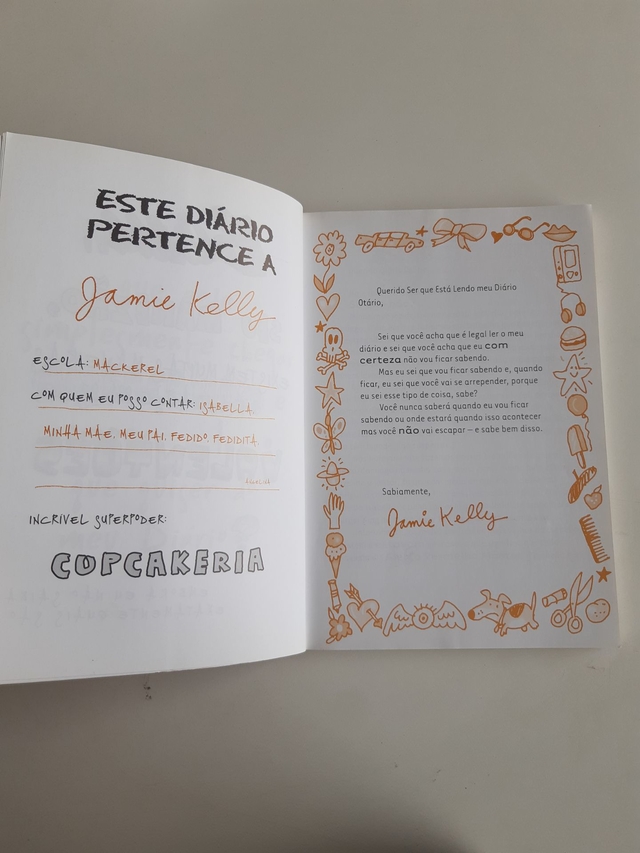 ESTE DIÁRIO
PERTENCE A
Jamie Kelly
ESCOLA: MACKEREL
COM QUEM EU POSSO CONTAR: ISABELLA,
MINHA MÃE, MEU PAI, FEDIDO, FEDIDITA,
ANGELINA
INCRÍVEL SUPERPODER:
CUPCAKERIA
Querido Ser que Está Lendo meu Diário
Otário,
Sei que você acha que é legal ler o meu
diário e sei que você acha que eu com
certeza não vou ficar sabendo.
Mas eu sei que vou ficar sabendo e, quando
ficar, eu sei que você vai se arrepender, porque
eu sei esse tipo de coisa, sabe?
Você nunca saberá quando eu vou ficar
sabendo ou onde estará quando isso acontecer
mas você não vai escapar – e sabe bem disso.
Sabiamente,
Jamie Kelly